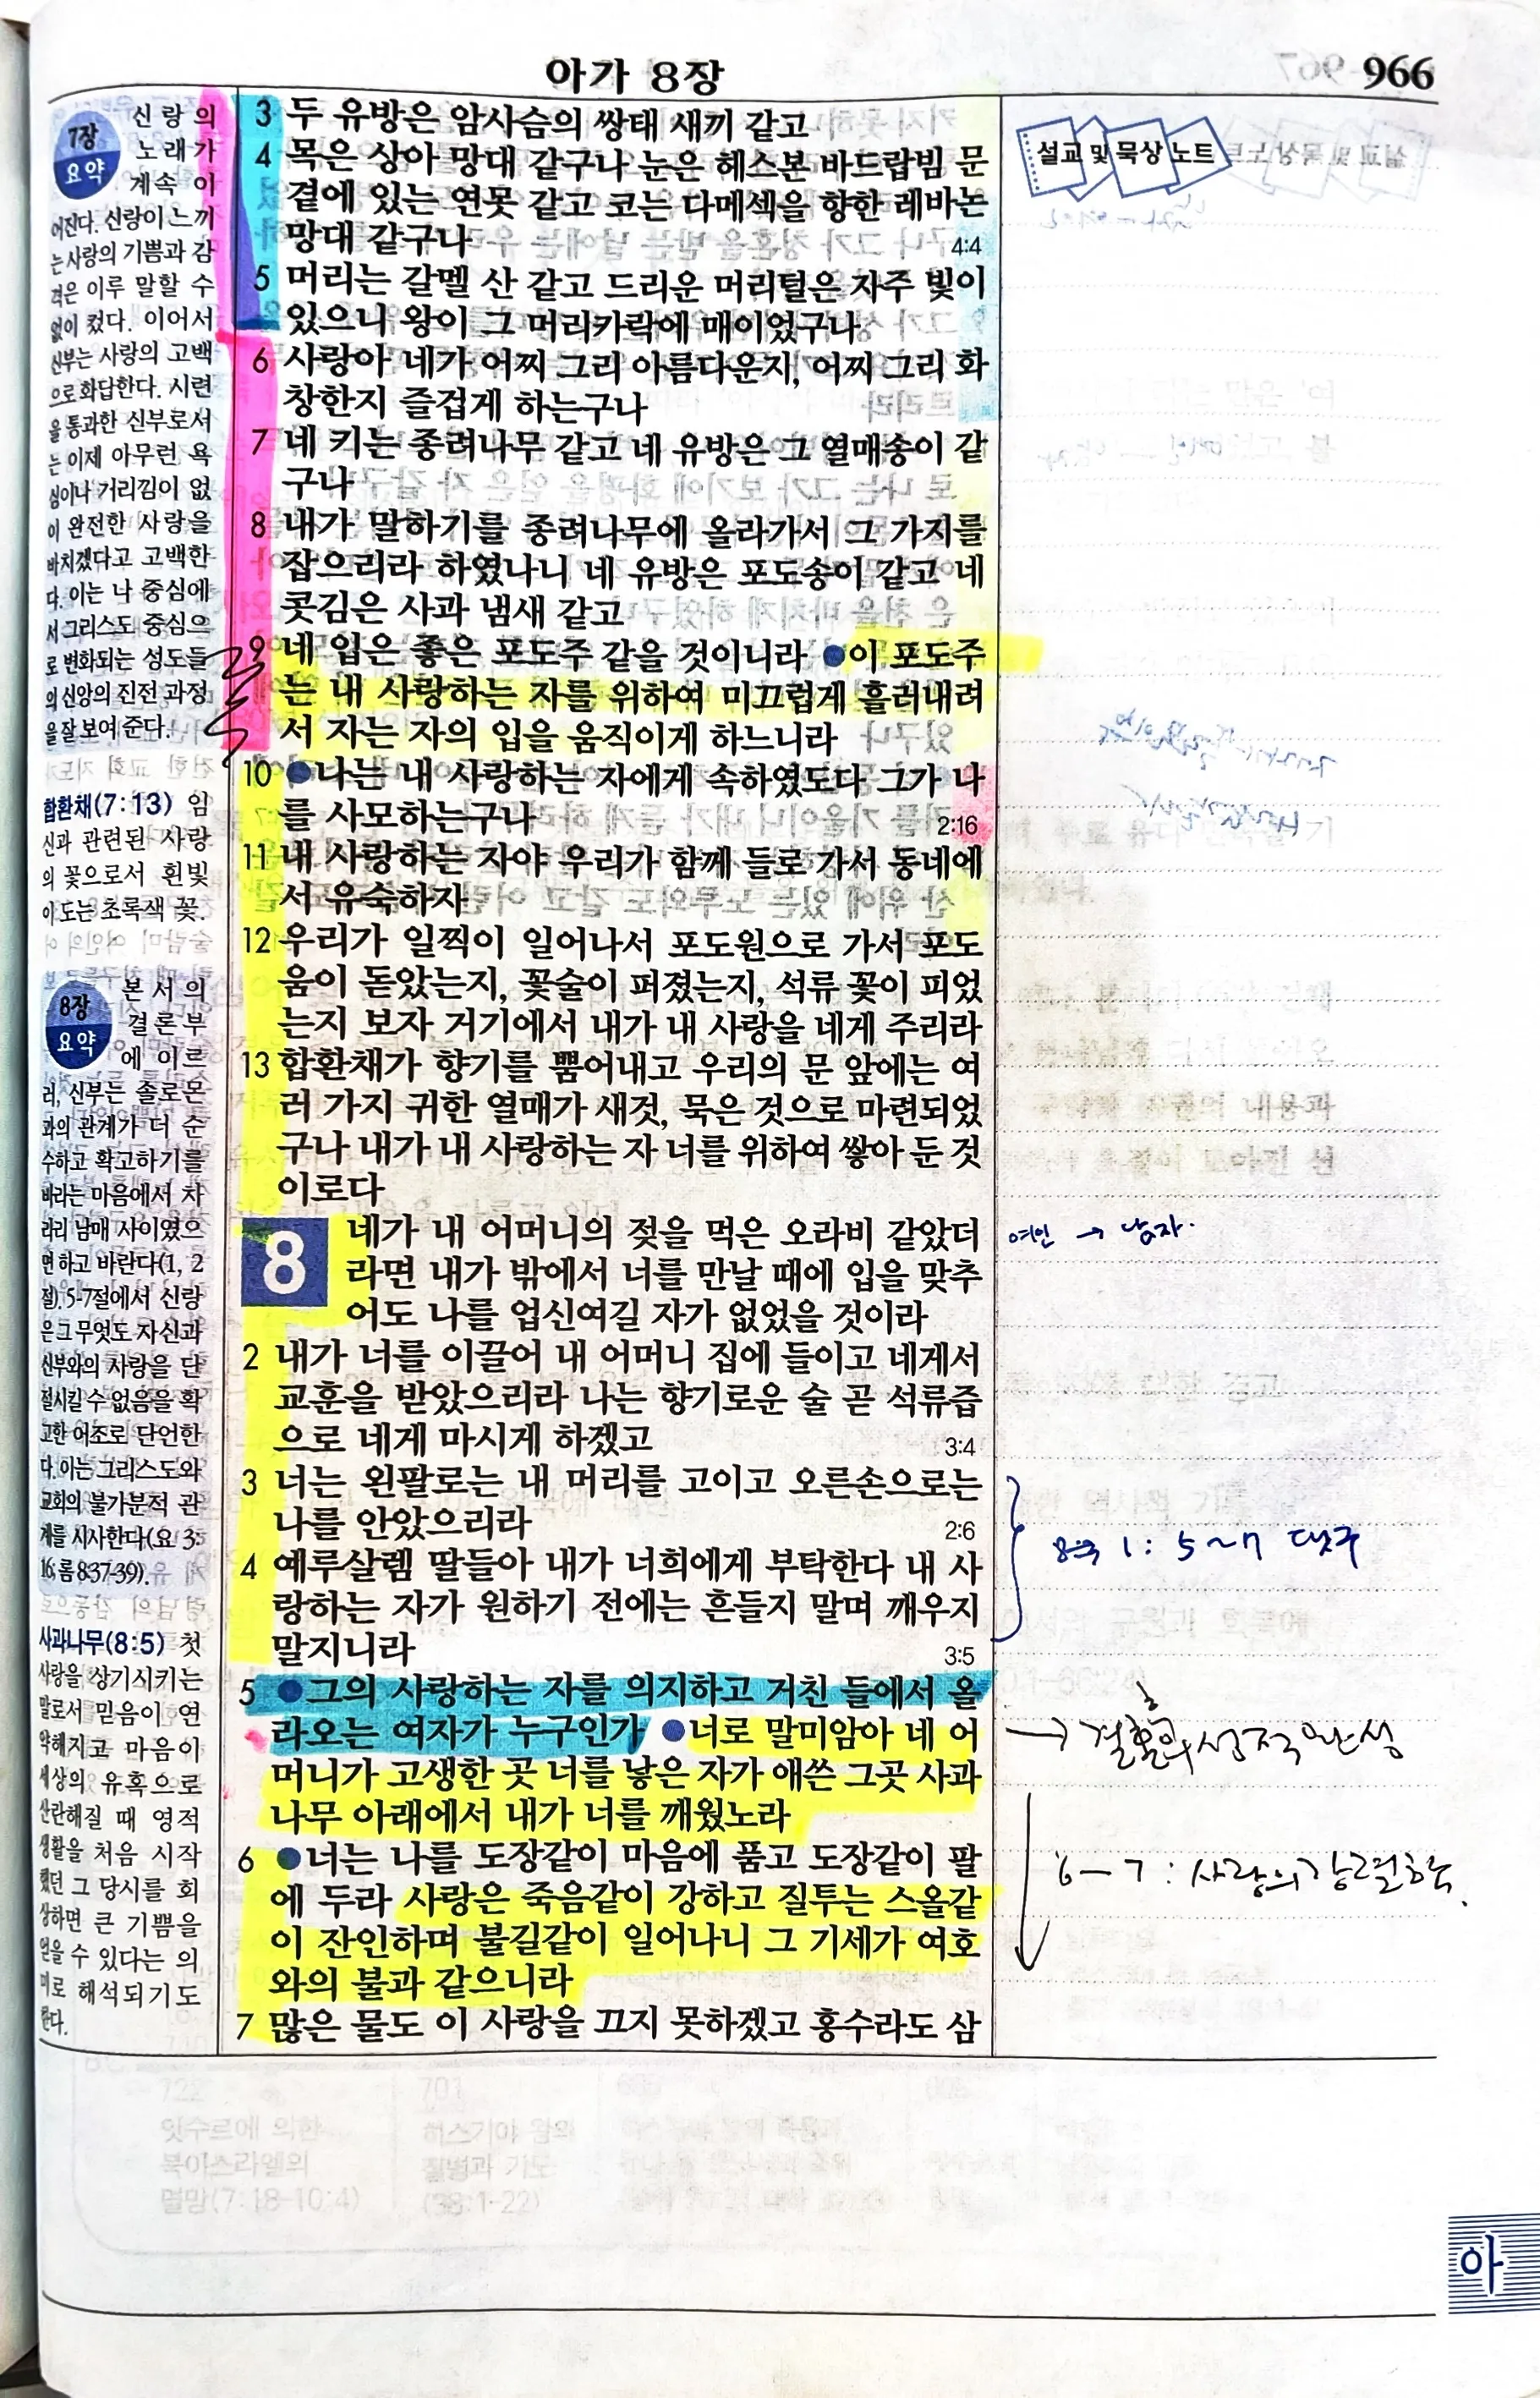 아가 8장
966
7장
요약
신랑의
노래가
계속 이
어진다. 신랑이 느끼
는 사랑의 기쁨과 감
격은 이루 말할 수
없이 컸다. 이어서
신부는 사랑의 고백
으로 화답한다. 시련
을 통과한 신부로서
는 이제 아무런 욕
심이나 거리낌이 없
이 완전한 사랑을
바치겠다고 고백한
다. 이는 나 중심에
서 그리스도 중심으
로 변화되는 성도들
의 신앙의 진전 과정
을 잘 보여 준다.
합환채(7:13) 임
신과 관련된 사랑
의 꽃으로서 흰빛
이 도는 초록색 꽃.
8장
요약
본서의
결론부
에 이르
러, 신부는 솔로몬
과의 관계가 더 순
수하고 확고하기를
바라는 마음에서 차
라리 남매 사이였으
면 하고 바란다(1, 2
절). 5-7절에서 신랑
은 그 무엇도 자신과
신부와의 사랑을 단
절시킬 수 없음을 확
고한 어조로 단언한
다. 이는 그리스도와
교회의 불가분적 관
계를 시사한다(요 3:
16; 롬 8:37-39).
사과나무(8:5) 첫
사랑을 상기시키는
말로서 믿음이 연
약해지고 마음이
세상의 유혹으로
산란해질 때 영적
생활을 처음 시작
했던 그 당시를 회
상하면 큰 기쁨을
얻을 수 있다는 의
미로 해석되기도
한다.
3 두 유방은 암사슴의 쌍태 새끼 같고
4 목은 상아 망대 같구나 눈은 헤스본 바드랍빔 문
곁에 있는 연못 같고 코는 다메섹을 향한 레바논
망대 같구나 4:4
5 머리는 갈멜 산 같고 드리운 머리털은 자주 빛이
있으니 왕이 그 머리카락에 매이었구나
6 사랑아 네가 어찌 그리 아름다운지, 어찌 그리 화
창한지 즐겁게 하는구나
7 네 키는 종려나무 같고 네 유방은 그 열매송이 같
구나
8 내가 말하기를 종려나무에 올라가서 그 가지를
잡으리라 하였나니 네 유방은 포도송이 같고 네
콧김은 사과 냄새 같고
9 네 입은 좋은 포도주 같을 것이니라 ●이 포도주
는 내 사랑하는 자를 위하여 미끄럽게 흘러내려
서 자는 자의 입을 움직이게 하느니라
10 ●나는 내 사랑하는 자에게 속하였도다 그가 나
를 사모하는구나 2:16
11 내 사랑하는 자야 우리가 함께 들로 가서 동네에
서 유숙하자
12 우리가 일찍이 일어나서 포도원으로 가서 포도
움이 돋았는지, 꽃술이 퍼졌는지, 석류 꽃이 피었
는지 보자 거기에서 내가 내 사랑을 네게 주리라
13 합환채가 향기를 뿜어내고 우리의 문 앞에는 여
러 가지 귀한 열매가 새것, 묵은 것으로 마련되었
구나 내가 내 사랑하는 자 너를 위하여 쌓아 둔 것
이로다
8 네가 내 어머니의 젖을 먹은 오라비 같았더
라면 내가 밖에서 너를 만날 때에 입을 맞추
어도 나를 업신여길 자가 없었을 것이라
2 내가 너를 이끌어 내 어머니 집에 들이고 네게서
교훈을 받았으리라 나는 향기로운 술 곧 석류즙
으로 네게 마시게 하겠고 3:4
3 너는 왼팔로는 내 머리를 고이고 오른손으로는
나를 안았으리라 2:6
4 예루살렘 딸들아 내가 너희에게 부탁한다 내 사
랑하는 자가 원하기 전에는 흔들지 말며 깨우지
말지니라 3:5
5 ●그의 사랑하는 자를 의지하고 거친 들에서 올
라오는 여자가 누구인가 ●너로 말미암아 네 어
머니가 고생한 곳 너를 낳은 자가 애쓴 그곳 사과
나무 아래에서 내가 너를 깨웠노라
6 ●너는 나를 도장같이 마음에 품고 도장같이 팔
에 두라 사랑은 죽음같이 강하고 질투는 스올같
이 잔인하며 불길같이 일어나니 그 기세가 여호
와의 불과 같으니라
7 많은 물도 이 사랑을 끄지 못하겠고 홍수라도 삼
설교 및 묵상 노트
여인 → 남자.
1: 5~7 댓구
→ 결혼 성적완성
6-7: 사랑의 강렬함.
아